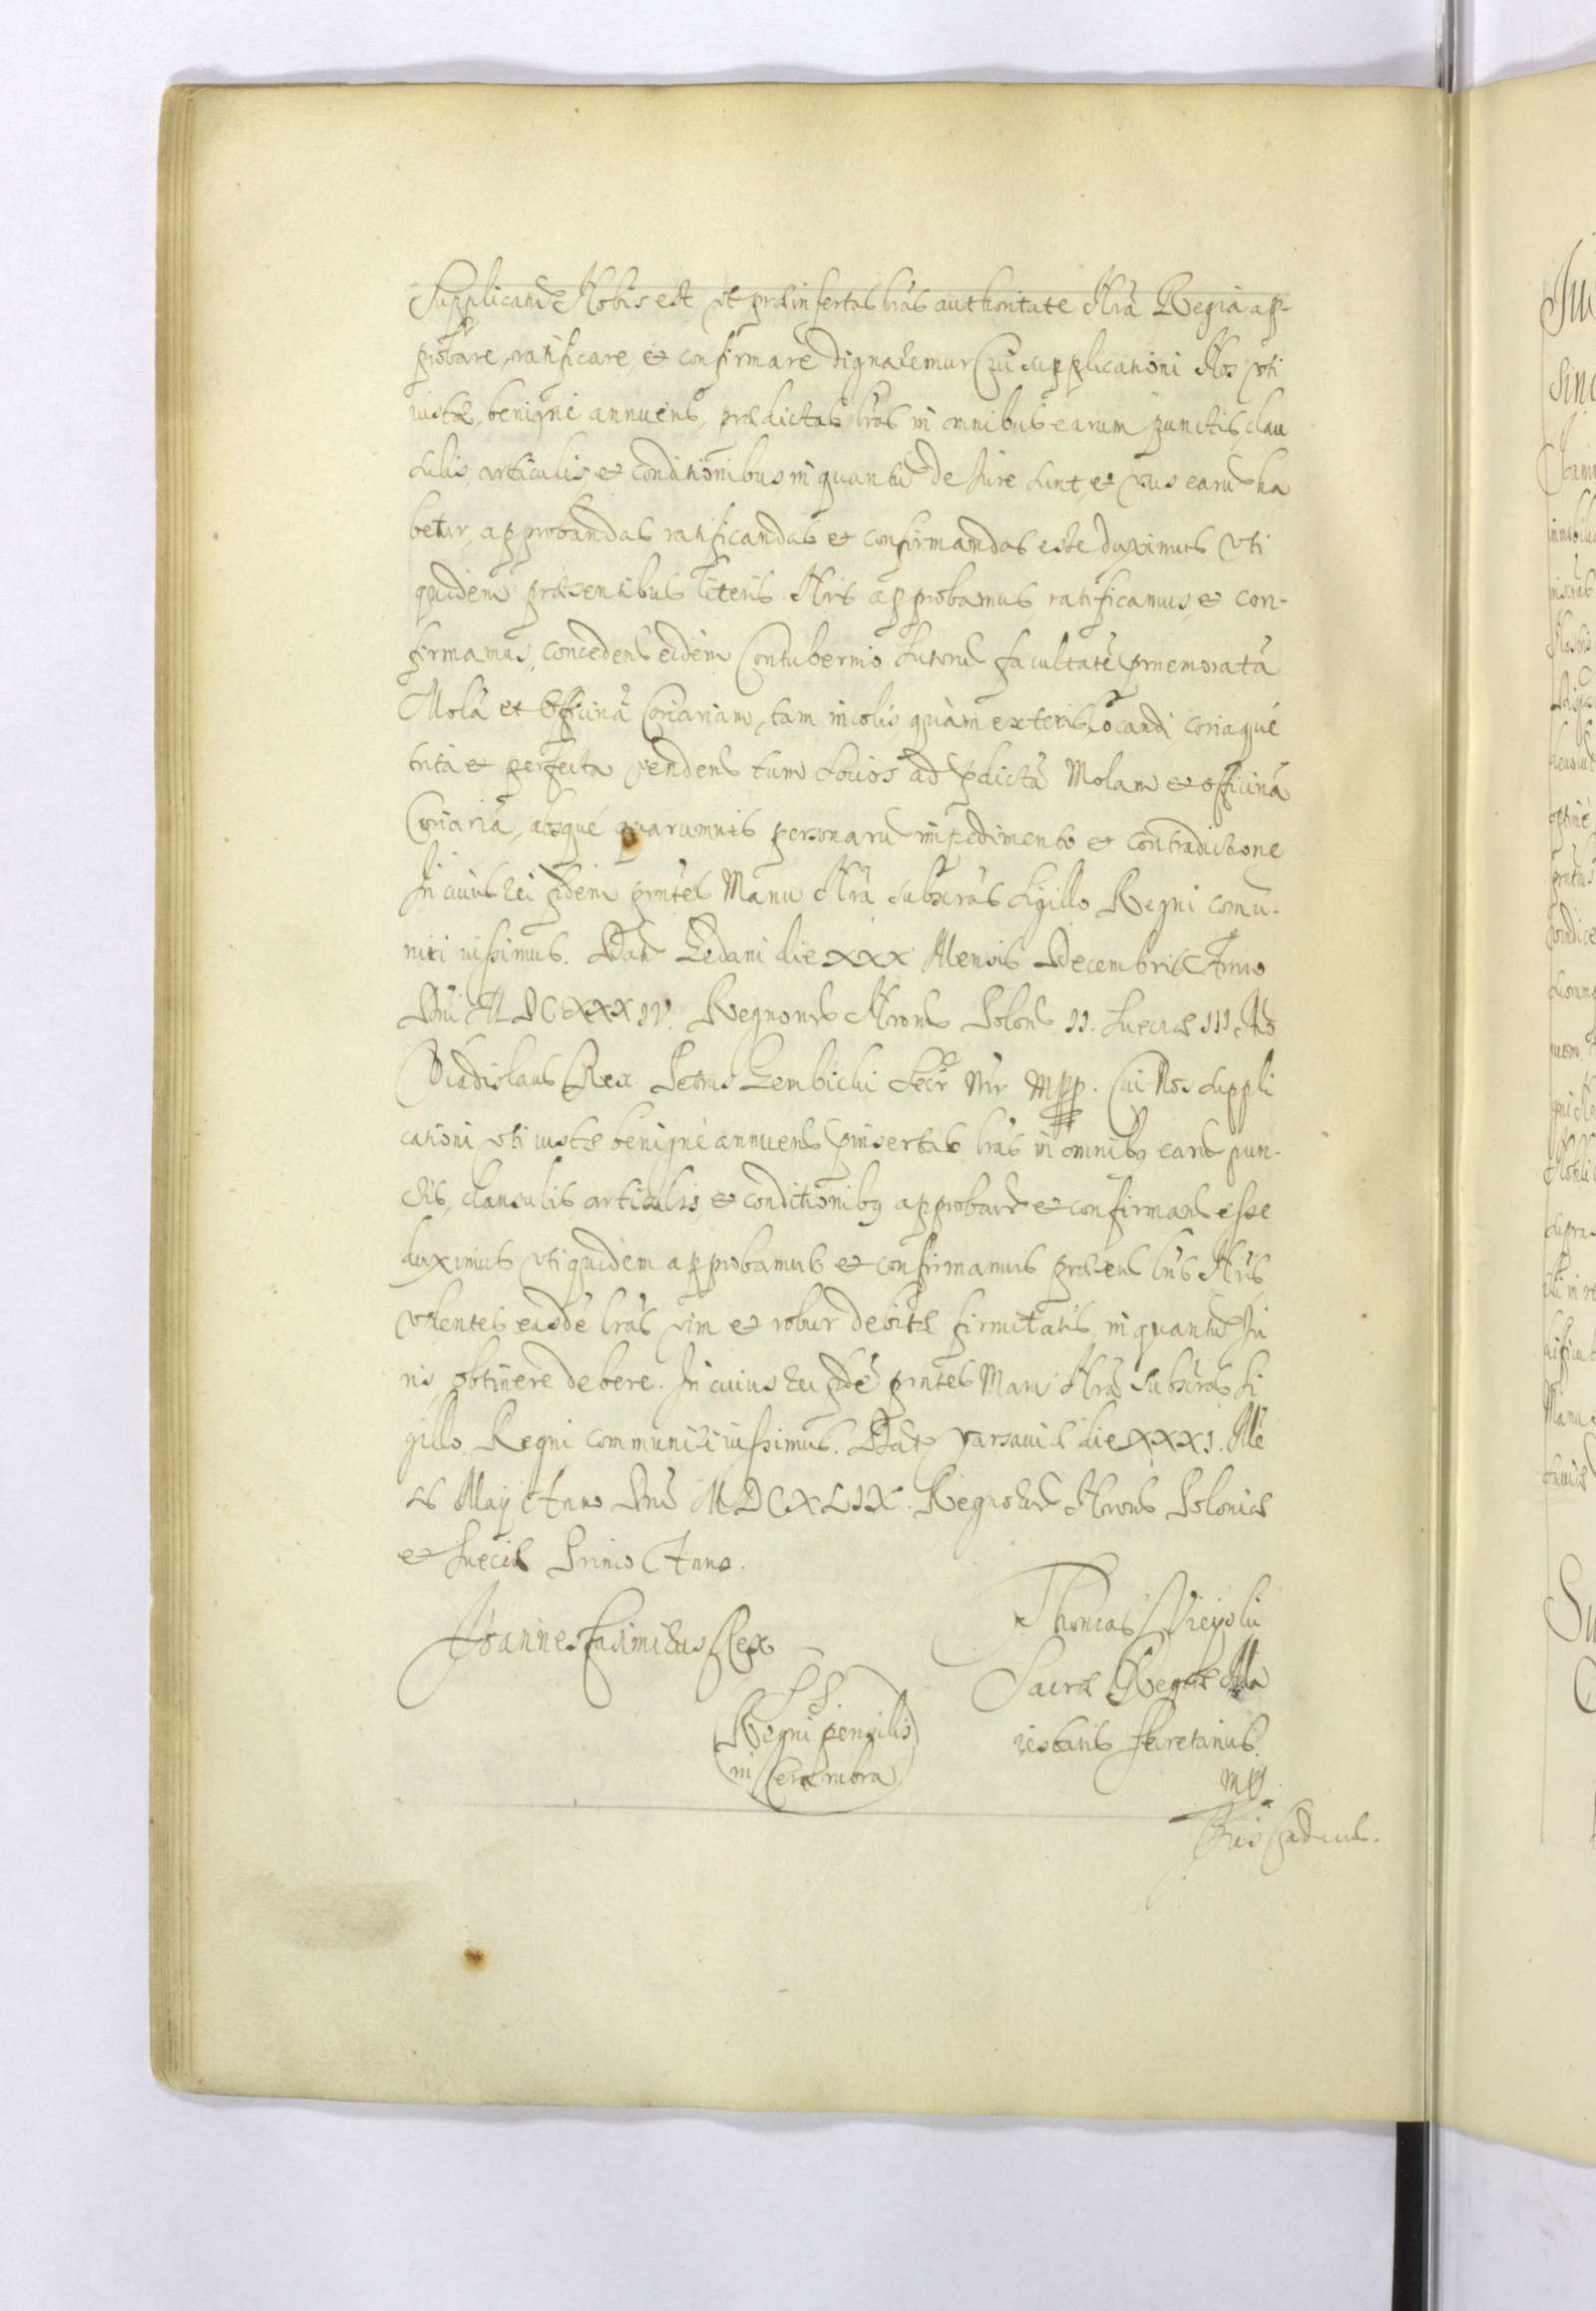 Supplicatum Nobis est, vt præinsertas lras authoritate Nrã Regia ap-
probare, ratificare, et confirmare dignaremur Cui supplicationi Nos vti
iustæ, benigne annuens, prædictas lras in omnibus earum punctis, clau
sulis, articulis, et conditionibus in quantũ de Jure sunt, et vsus earũ ha
betur, approbandas ratificandas et confirmandas esse duximus, vti
quidem præsentibus literis Nris approbamus, ratificamus, et con-
firmamus, concedens eidem Contubernio Sutorũ facultatẽ prnemoratã
Molã et Officinã Coriariam, tam incolis, quàm exteris locandi, coriaqué
trita et perfecta vendens tum Socios ad pdictã Molam et officinã
Coriariã, absqué quarumuis personarũ impedimento et contradictione
In cuius rei fidem pntes Manu Nrã subscras Sigillo Regni comu-
niri iussimus. Dat Gedani die XXX Mensis Decembris Anno
Dni MDCXXXIV. Regnorũ Nrorũ Polon II. Sueciæ III Ao
Vladislaus Rex Petrus Gembicki Secr Mr mpp. Cui Nos suppli
cationi vti iustæ benigné annuens pinsertas lras in omnibq earũ pun-
ctis, clausulis, articulis, et conditionibq approband et confirmand esse
duximus vti quidem approbamus et confirmamus præsens lris Nris,
volentes easdẽ lras vim et robur debitæ firmitatis, in quantũ Ju
ris, obtinere debere. In cuius rei fidẽ pntes Manu Nrã subscras Si
gillo Regni communiri iussimus. Dat Varsauiæ die XXXI. Mẽ
sis Maij Anno Dni MDCXLIX. Regnorũ Nrorũ Poloniæ
et Sueciæ Primo Anno.
Joannes Casimirus Rex
Thomas Vieyski
Sacræ Regiæ Ma
iestatis Secretarius
mp
L S.
Regni pensilis
in Cera rubra